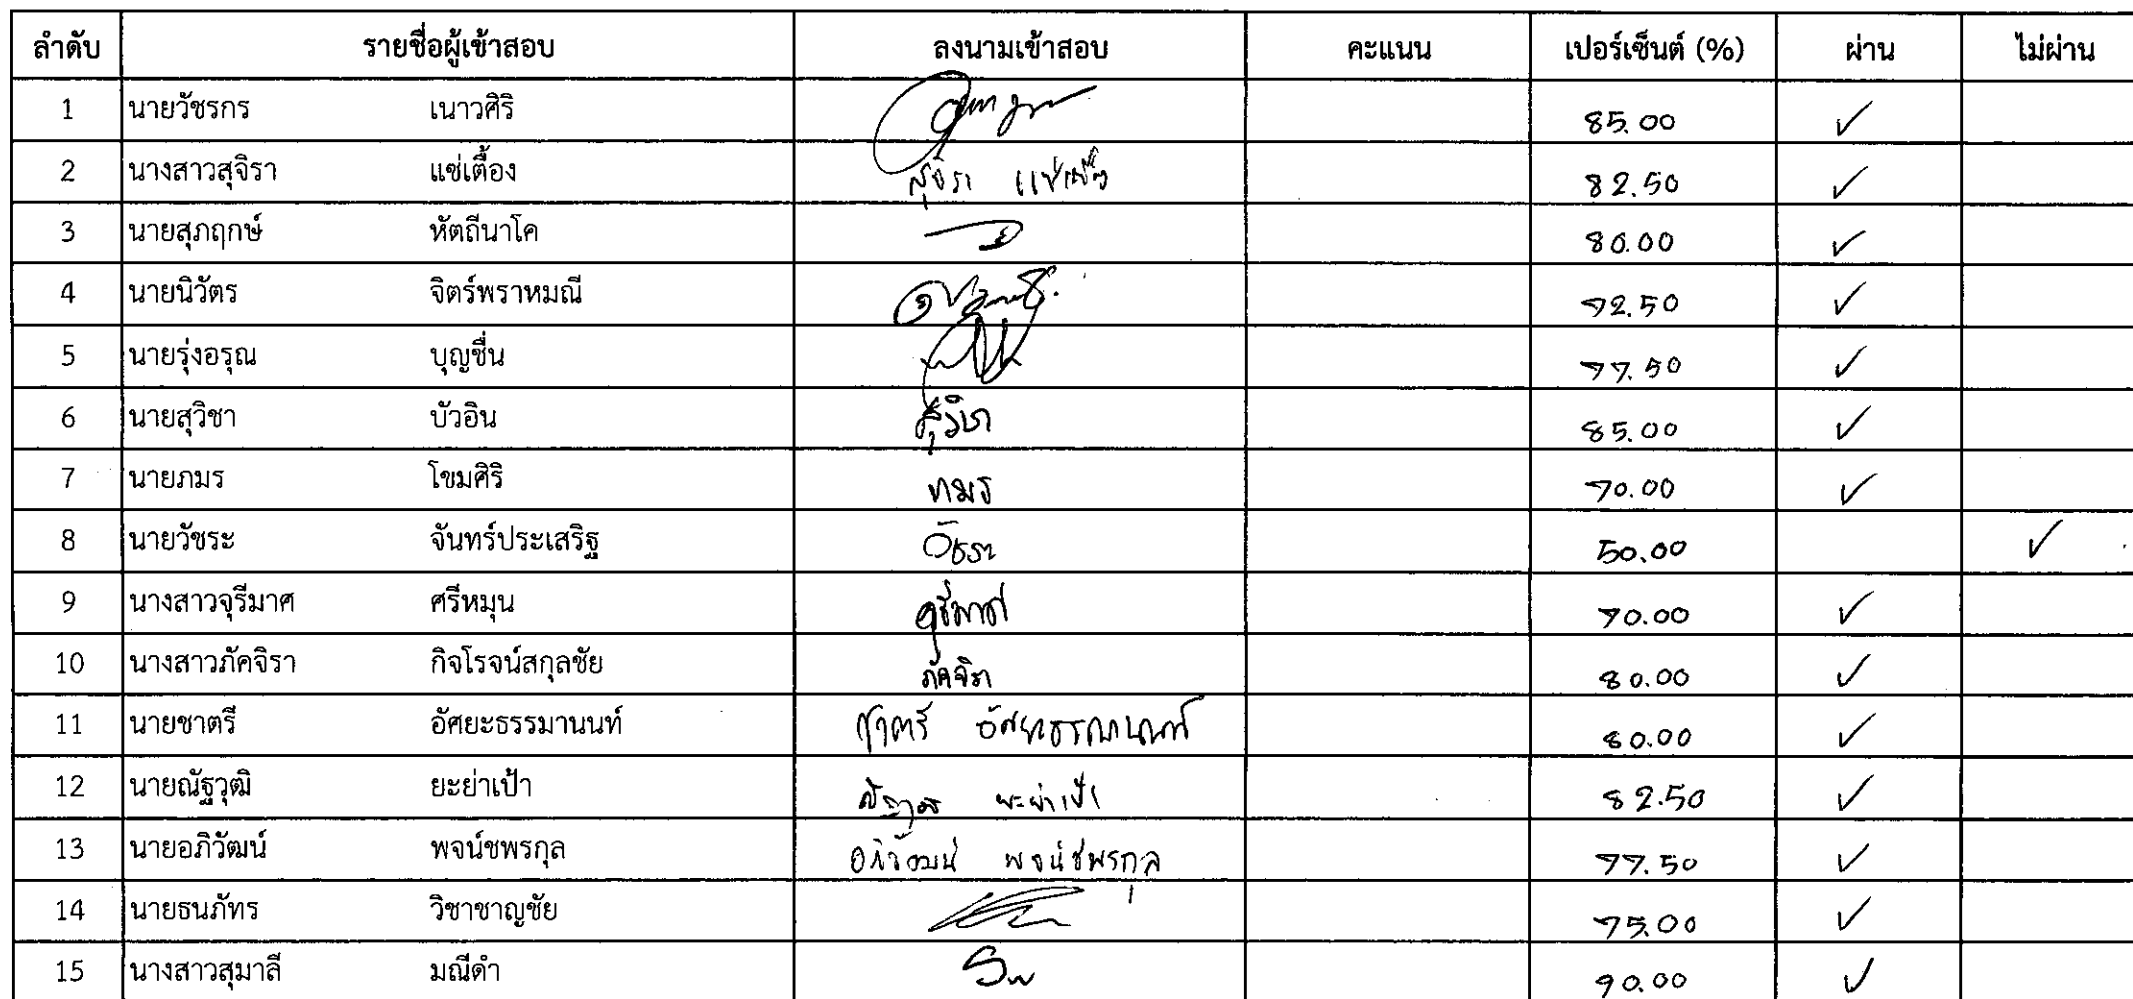 ลำดับ รายชื่อผู้เข้าสอบ ลงนามเข้าสอบ คะแนน เปอร์เซ็นต์ (%) ผ่าน ไม่ผ่าน
1 นายวัชรกร เนาวศิริ 85.00 ✓
2 นางสาวสุจิรา แซ่เตื้อง สุจิรา แซ่เตื้อง 82.50 ✓
3 นายสุภฤกษ์ หัตถีนาโค 80.00 ✓
4 นายนิวัตร จิตร์พราหมณี 72.50 ✓
5 นายรุ่งอรุณ บุญชื่น 77.50 ✓
6 นายสุวิชา บัวอิน สุวิชา 85.00 ✓
7 นายภมร โขมศิริ ภมร 70.00 ✓
8 นายวัชระ จันทร์ประเสริฐ วัชระ 50.00 ✓
9 นางสาวจุรีมาศ ศรีหมุน จุรีมาศ 70.00 ✓
10 นางสาวภัคจิรา กิจโรจน์สกุลชัย ภัคจิรา 80.00 ✓
11 นายชาตรี อัศยะธรรมานนท์ ชาตรี อัศยะธรรมานนท์ 80.00 ✓
12 นายณัฐวุฒิ ยะย่าเป้า ณัฐวุฒิ ยะย่าเป้า 82.50 ✓
13 นายอภิวัฒน์ พจน์ชพรกุล อภิวัฒน์ พจน์ชพรกุล 77.50 ✓
14 นายธนภัทร วิชาชาญชัย 75.00 ✓
15 นางสาวสุมาลี มณีดำ 90.00 ✓